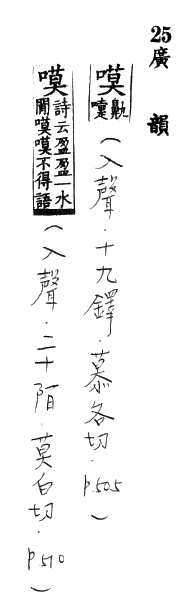 25廣韻
嗼（入聲．十九鐸．慕各切．p.505）
嗼詩云盈盈一水
閒嗼嗼不得語（入聲．二十陌．莫白切．p510）